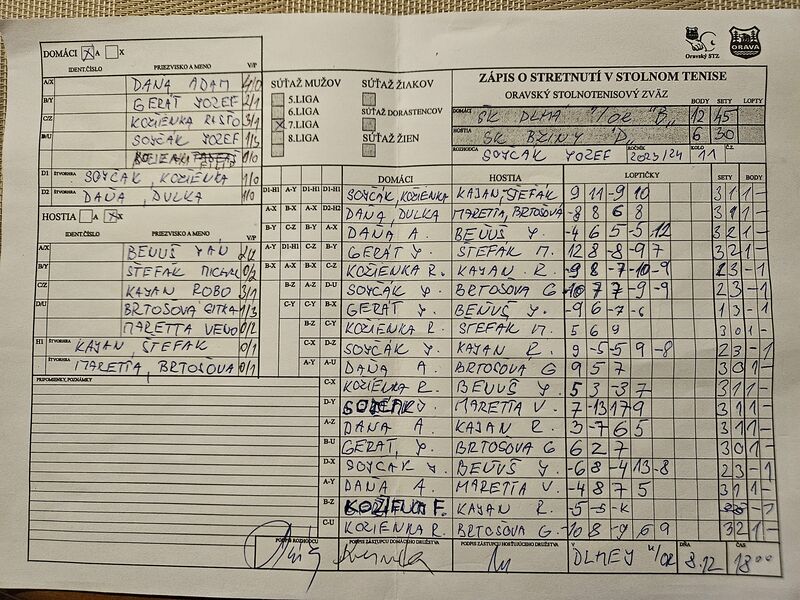 DOMÁCI A X
IDENT.ČÍSLO PRIEZVISKO A MENO V/P
A/X DAŇA ADAM 4/0
B/Y GERÁT JOZEF 2/1
C/Z KOZIENKA RISŤO 3/1
SOJČÁK JOZEF 1/3
D1 ŠTVORHRA SOJČÁK, KOZIENKA 1/0
D2 ŠTVORHRA DAŇA, DULKA 1/0
HOSTIA A X
IDENT.ČÍSLO PRIEZVISKO A MENO V/P
A/X BEŇUŠ JÁN
B/Y ŠTEFÁK MICHAL 0/2
C/Z KAJAN ROBO 3/1
D/U BRTOŠOVÁ GITKA 1/3
MARETTA VENO 0/2
H1 ŠTVORHRA KAJAN, ŠTEFAK 0/1
ŠTVORHRA MARETTA, BRTOŠOVÁ 0/1
PRIPOMIENKY, POZNÁMKY
SÚŤAŽ MUŽOV
5.LIGA
6.LIGA
7.LIGA
8.LIGA
SÚŤAŽ ŽIAKOV
SÚŤAŽ DORASTENCOV
SÚŤAŽ ŽIEN
Oravský STZ
ORAVA
ZÁPIS O STRETNUTÍ V STOLNOM TENISE
ORAVSKÝ STOLNOTENISOVÝ ZVÄZ
BODY SETY LOPTY
DOMÁCI ŠK DLHÁ "/OR B" 12 45
HOSTIA ŠK BZINY "D" 6 30
ROZHODCA SOJČÁK JOZEF ROČNÍK 2023/24 KOLO 11 Č.Z.
DOMÁCI HOSTIA LOPTIČKY SETY BODY
D1-H1 A-Y D1-H1 D1-H1 SOJČÁK, KOZIENKA KAJAN, ŠTEFAK 9 11 -9 10 3 1 1 -
A-X B-X A-X D2-H2 DAŇA, DULKA MARETTA, BRTOŠOVÁ -8 8 6 8 3 1 1 -
B-Y C-Y B-Y A-X DAŇA A. BEŇUŠ J. -4 6 5 -5 12 3 2 1 -
A-Y D1-H1 C-Z B-Y GERÁT J. ŠTEFAK M. 12 8 -8 -9 7 3 2 1 -
B-X A-X A-X C-Z KOZIENKA R. KAJAN R. -9 8 -7 10 -9 2 3 - 1
B-Z A-Z D-U SOJČÁK J. BRTOŠOVÁ G -10 7 7 -9 -9 2 3 - 1
C-Y C-Y B-X GERÁT J. BEŇUŠ J. -9 6 -7 -6 1 3 - 1
B-Z C-Y KOZIENKA R. ŠTEFAK M. 5 6 9 3 0 1 -
C-X D-Z SOJČÁK J. KAJAN R. 9 -5 -5 9 -8 2 3 - 1
A-Y A-U DAŇA A. BRTOŠOVÁ G 9 5 7 3 0 1 -
C-X KOZIENKA R. BEŇUŠ J. 5 3 -3 7 3 1 1 -
D-Y SOJČÁK J. MARETTA V. 7 -13 17 9 3 1 1 -
A-Z DAŇA A. KAJAN R. 3 -7 6 5 3 1 1 -
B-U GERÁT, J. BRTOŠOVÁ G 6 2 7 3 0 1 -
D-X SOJČÁK J. BEŇUŠ J. -6 8 -4 13 -8 2 3 - 1
A-Y DAŇA A. MARETTA V. -4 8 7 5 3 1 1 -
B-Z KOZIENKA F. KAJAN R. -5 -5 -K - 1
C-U KOZIENKA R. BRTOŠOVÁ G. -10 8 -9 6 9 3 2 1 -
PODPIS ROZHODCU PODPIS ZÁSTUPCU DOMÁCEHO DRUŽSTVA PODPIS ZÁSTUPCU HOSŤUJÚCEHO DRUŽSTVA V DLHEJ n/OR DŇA 8.12 ČAS 18:00